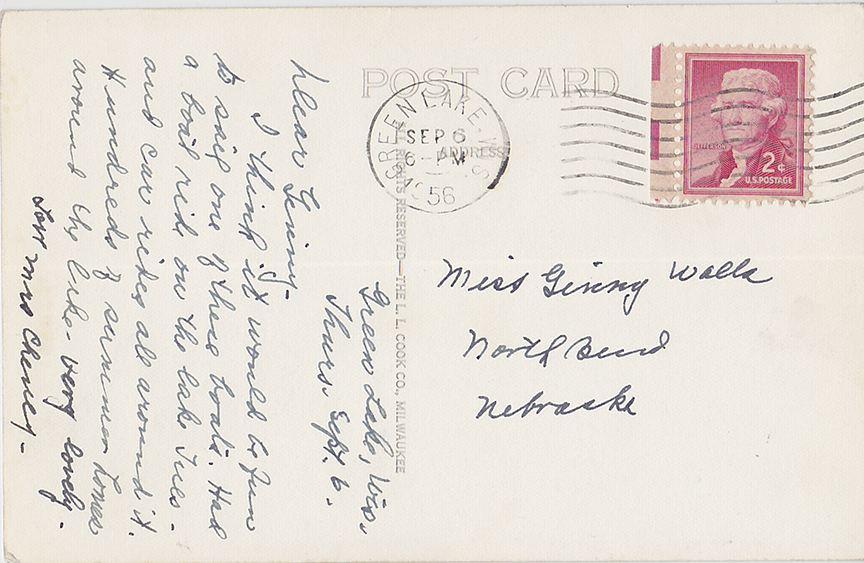 POST CARD
ADDRESS
GREEN LAKE, WIS.
SEP 6
6 - PM
1956
JEFFERSON
2¢
U.S. POSTAGE
ALL RIGHTS RESERVED—THE L. L. COOK CO., MILWAUKEE
Green Lake, Wis.
Thurs. Sept. 6.
Dear Ginny.
I think it would be fun
to sail one of these boats. Had
a boat ride on the lake Tues.
and car rides all around it.
Hundreds of summer homes
around the lake - very lovely -
Love Mrs Cheney -
Miss Ginny Walla
North Bend
Nebraska